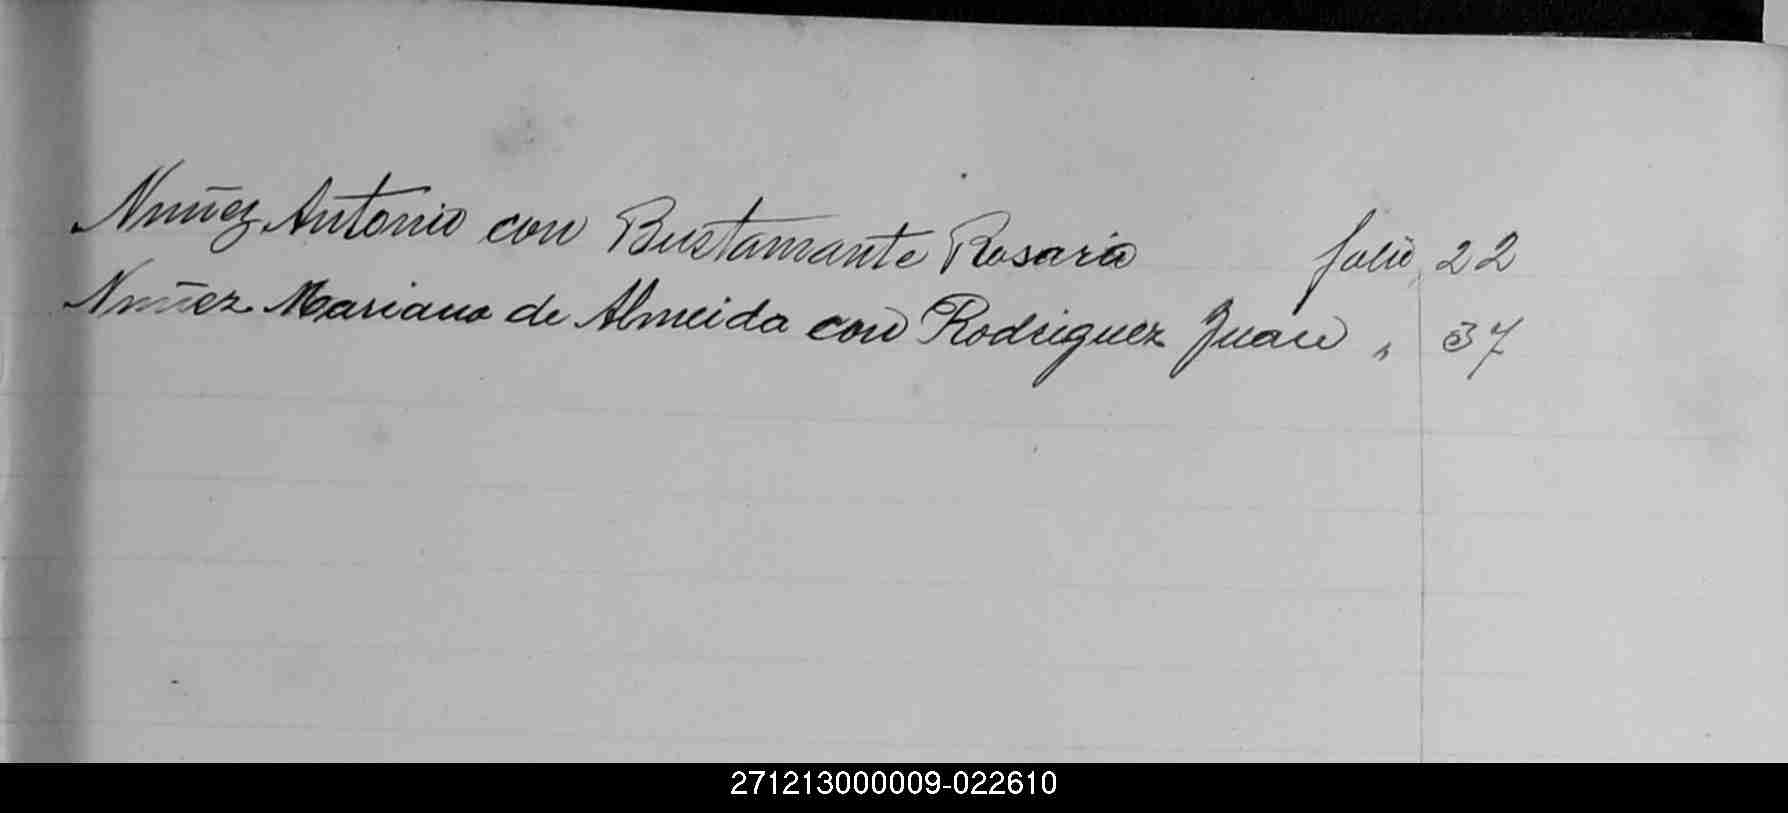 Nuñez Antonio con Bustamante Rosario folio 22
Nuñez Mariano de Almeida con Rodriguez Juan " 37
271213000009-022610